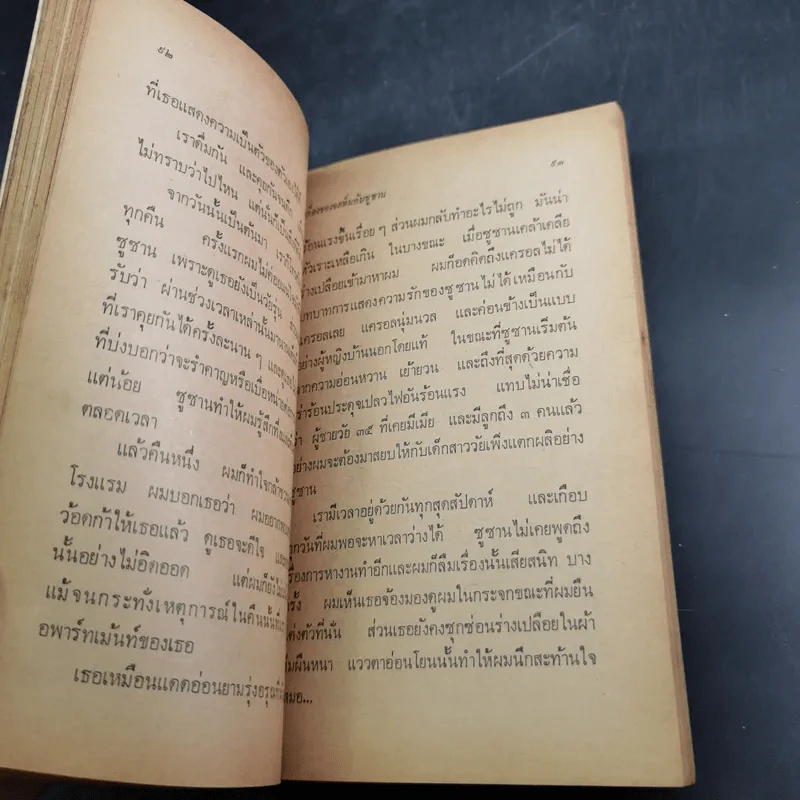 ๕๒
ที่เธอแสดงความเป็นตัวของตัวเอง
เราดื่มกัน และคุยกันจนดึก
ไม่ทราบว่าไปไหน แต่นั่นก็เป็น
จากวันนั้นเป็นต้นมา เรา
ทุกคืน ครั้งแรกผมไม่ค่อย
ซูซาน เพราะดูเธอยังเป็นวัยรุ่น
รับว่า ผ่านช่วงเวลาเหล่านั้นมา
ที่เราคุยกันได้ครั้งละนาน ๆ และ
ที่บ่งบอกว่าจะรำคาญหรือเบื่อหน่าย
แต่น้อย ซูซานทำให้ผมรู้สึก
ตลอดเวลา
แล้วคืนหนึ่ง ผมก็ทำใจกล้า
โรงแรม ผมบอกเธอว่า ผมอยาก
ว้อดก้าให้เธอแล้ว ดูเธอจะดีใจ
นั้นอย่างไม่อิดออด แต่ผมก็ยัง
แม้จนกระทั่งเหตุการณ์ในคืนนั้น
อพาร์ทเม้นท์ของเธอ
เธอเหมือนแดดอ่อนยามรุ่งอรุณ
๕๓
ร้อนแรงขึ้นเรื่อย ๆ ส่วนผมกลับทำอะไรไม่ถูก มันน่า
หัวเราะเหลือเกิน ในบางขณะ เมื่อซูซานเคล้าเคลีย
ร่างเปลือยเข้ามาหาผม ผมก็อดคิดถึงแครอลไม่ได้
บทบาทการแสดงความรักของซูซานไม่ได้เหมือนกับ
แครอลเลย แครอลนุ่มนวล และค่อนข้างเป็นแบบ
อย่างผู้หญิงบ้านนอกโดยแท้ ในขณะที่ซูซานเริ่มต้น
จากความอ่อนหวาน เย้ายวน และถึงที่สุดด้วยความ
เร่าร้อนประดุจเปลวไฟอันร้อนแรง แทบไม่น่าเชื่อ
ว่า ผู้ชายวัย ๓๕ ที่เคยมีเมีย และมีลูกถึง ๓ คนแล้ว
อย่างผมจะต้องมาสยบให้กับเด็กสาววัยเพิ่งแตกผลิอย่าง
ซูซาน
เรามีเวลาอยู่ด้วยกันทุกสุดสัปดาห์ และเกือบ
ทุกวันที่ผมพอจะหาเวลาว่างได้ ซูซานไม่เคยพูดถึง
เรื่องการหางานทำอีกและผมก็ลืมเรื่องนั้นเสียสนิท บาง
ครั้ง ผมเห็นเธอจ้องมองดูผมในกระจกขณะที่ผมยืน
แต่งตัวที่นั่น ส่วนเธอยังคงซุกซ่อนร่างเปลือยในผ้า
ห่มผืนหนา แววตาอ่อนโยนนั้นทำให้ผมนึกสะท้านใจ
เสมอ...